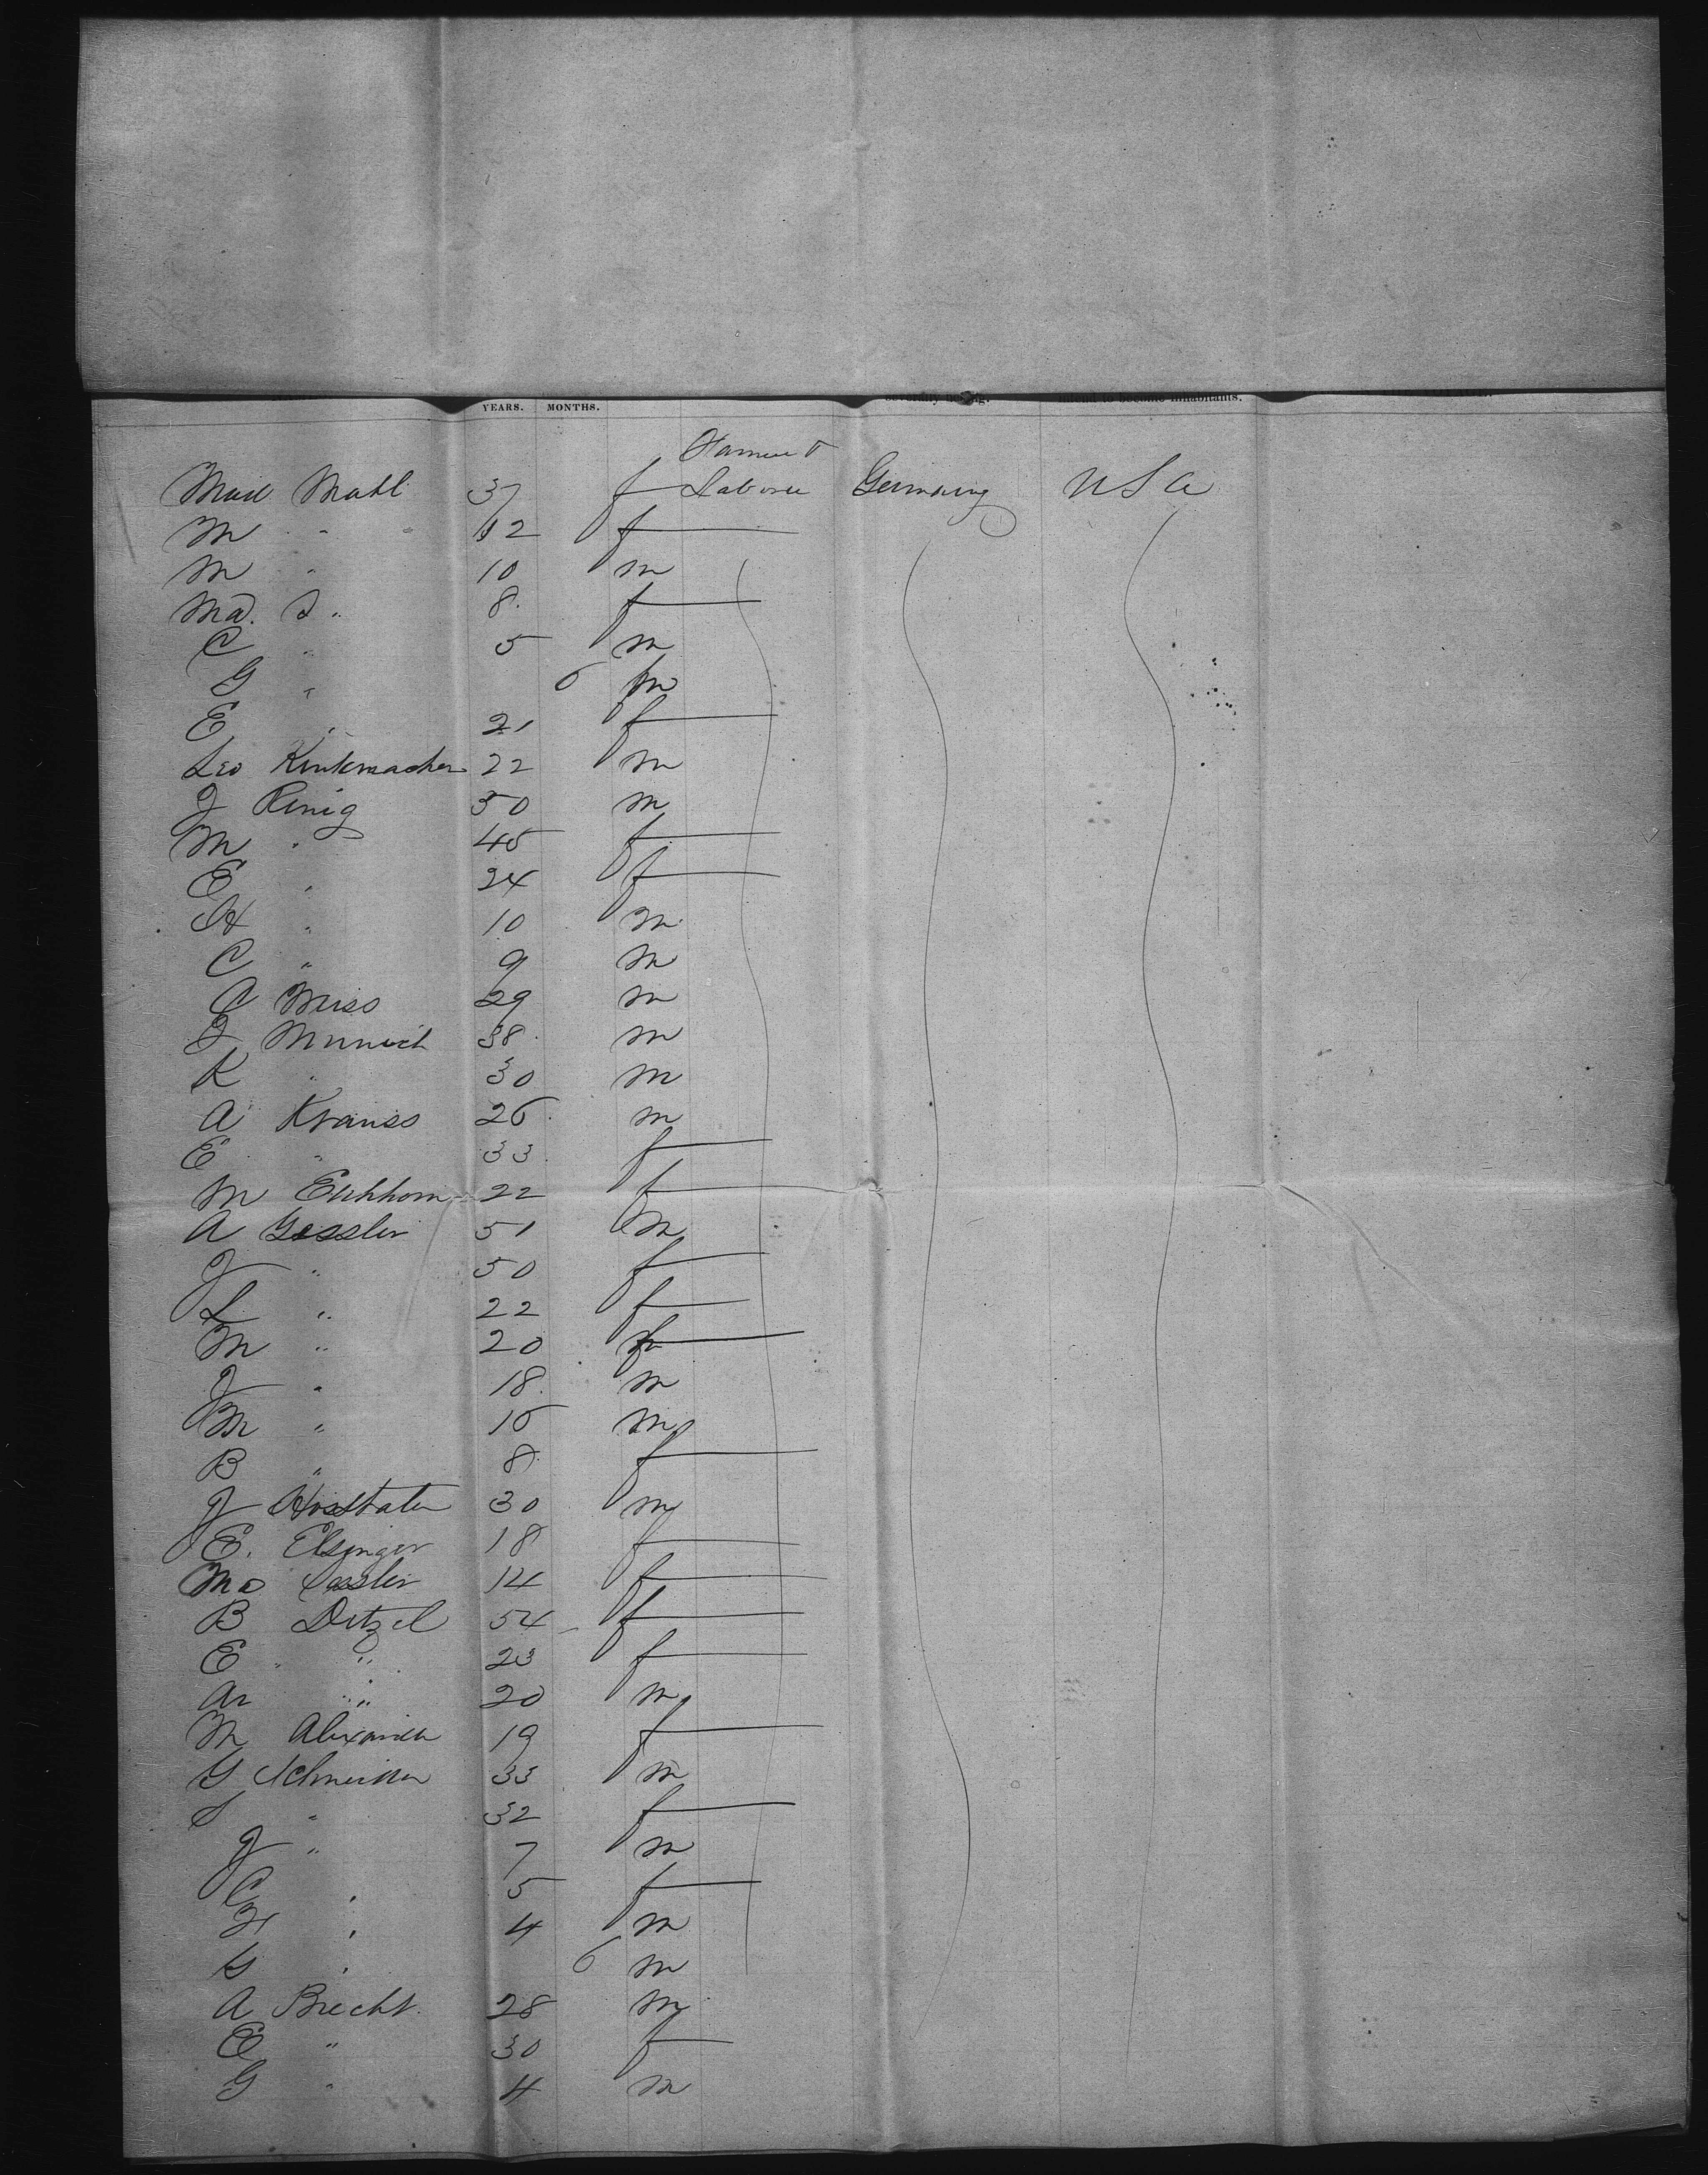 YEARS. MONTHS. severally belong. intend to become inhabitants.
Farmer &
Mahl 37 f Laborer Germany U S A
M " 12 f
M " 10 m
Md. S " 8 f
C " 5 m
G " 6 m
E " 21 f
Leo 22 m
J Renig 50 m
M " 45 f
E " 24 f
H " 10 m
C " 9 m
C Miss 29 m
J Munich 38 m
K " 30 m
A Krauss 26 m
E " 33 f
M Eichhorn 22 f
A Gessler 51 m
J " 50 f
L " 22 f
M " 20 f
J " 18 m
M " 15 m
B " 8 f
J 30 m
E. Elsinger 18 f
Ma 14 f
B Ditzel 54 f
E " 23 f
Ar " 20 m
M Alexander 19 f
G Schneider 33 m
S " 32 f
J " 7 m
C " 5 f
H " 4 m
G " 6 m
A Brecht 28 m
E " 30 f
G " 4 m